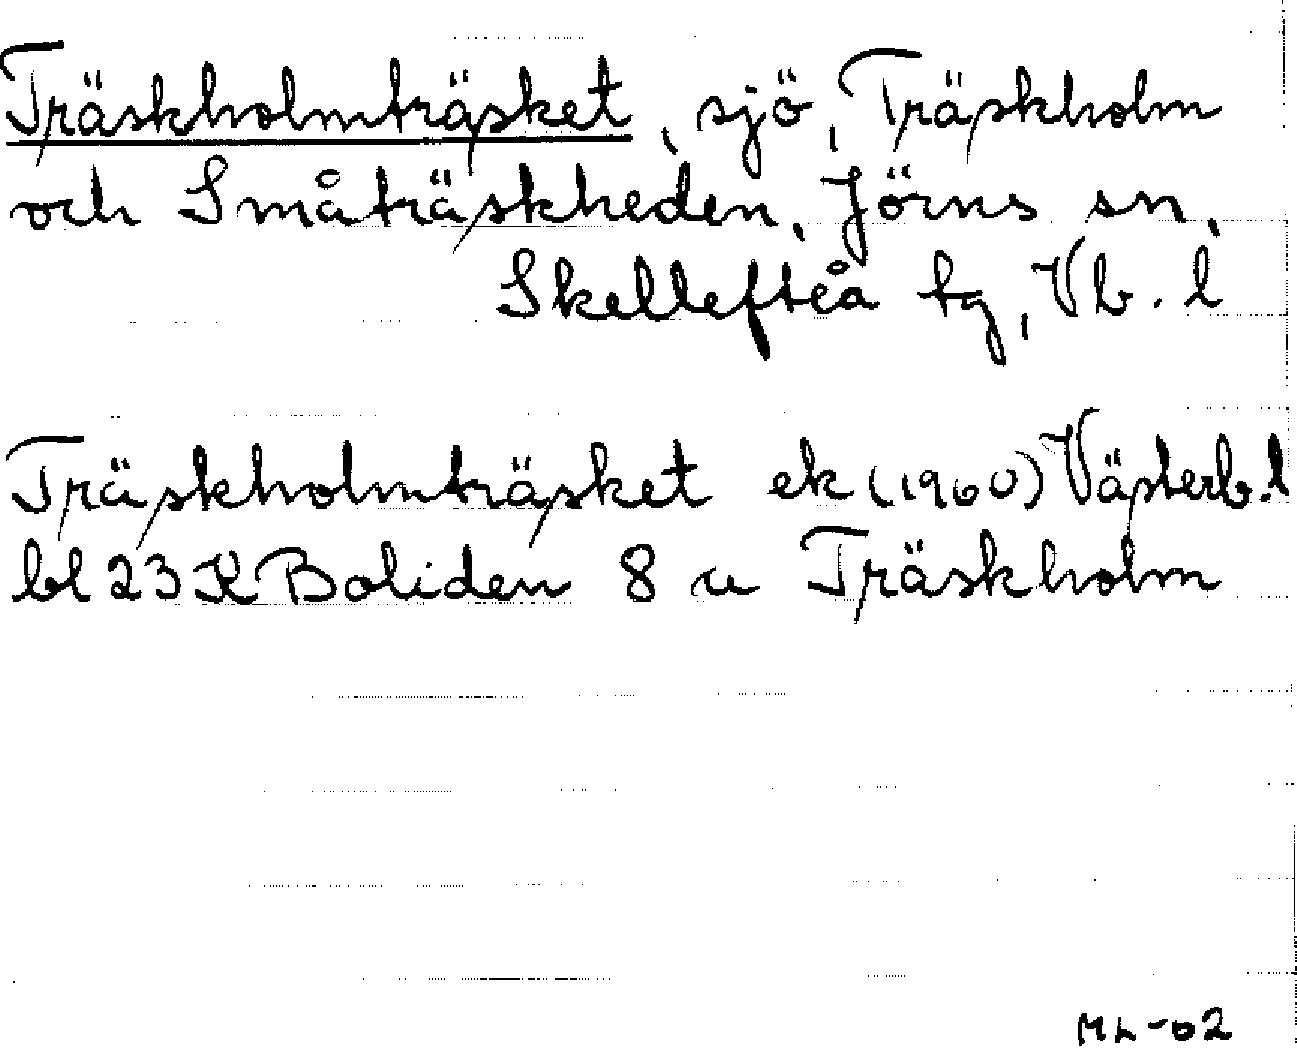 Träskholmträsket, sjö, Träskholm
och Småträskheden, Jörns sn,
Skellefteå tg, Vb. l
Träskholmträsket ek (1960) Västerb. l
bl 23 K Boliden 8 u Träskholm
ML-02